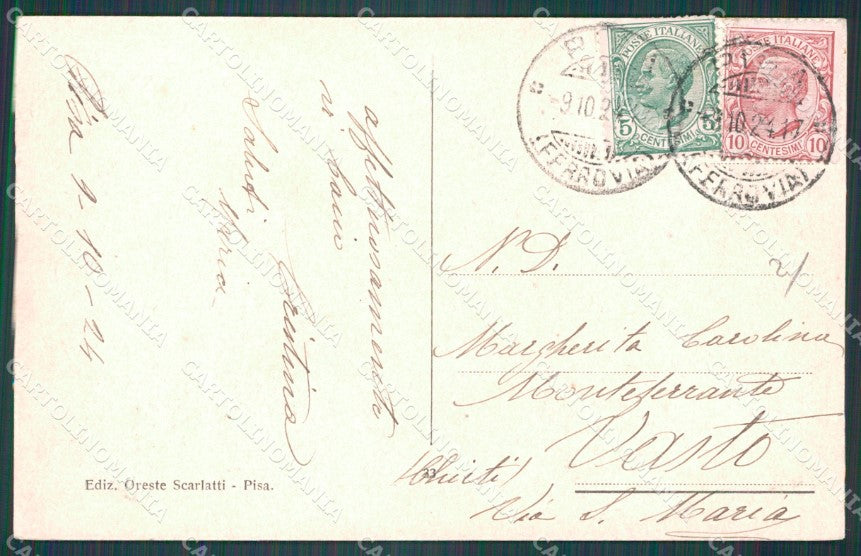 Pisa 9-10-24
affettuosamente
vi bacio
Cristina
Saluti
Maria
Ediz. Oreste Scarlatti - Pisa.
33
POSTE ITALIANE
5 CENTESIMI 5
POSTE ITALIANE
10 CENTESIMI 10
PISA
9.10.24.17
(FERROVIA)
9.10.24.17
(FERROVIA)
N. D.
Margherita Carolina
Monteferrante
Vasto
(Chieti)
Via S. Maria
CARTOLINOMANIA